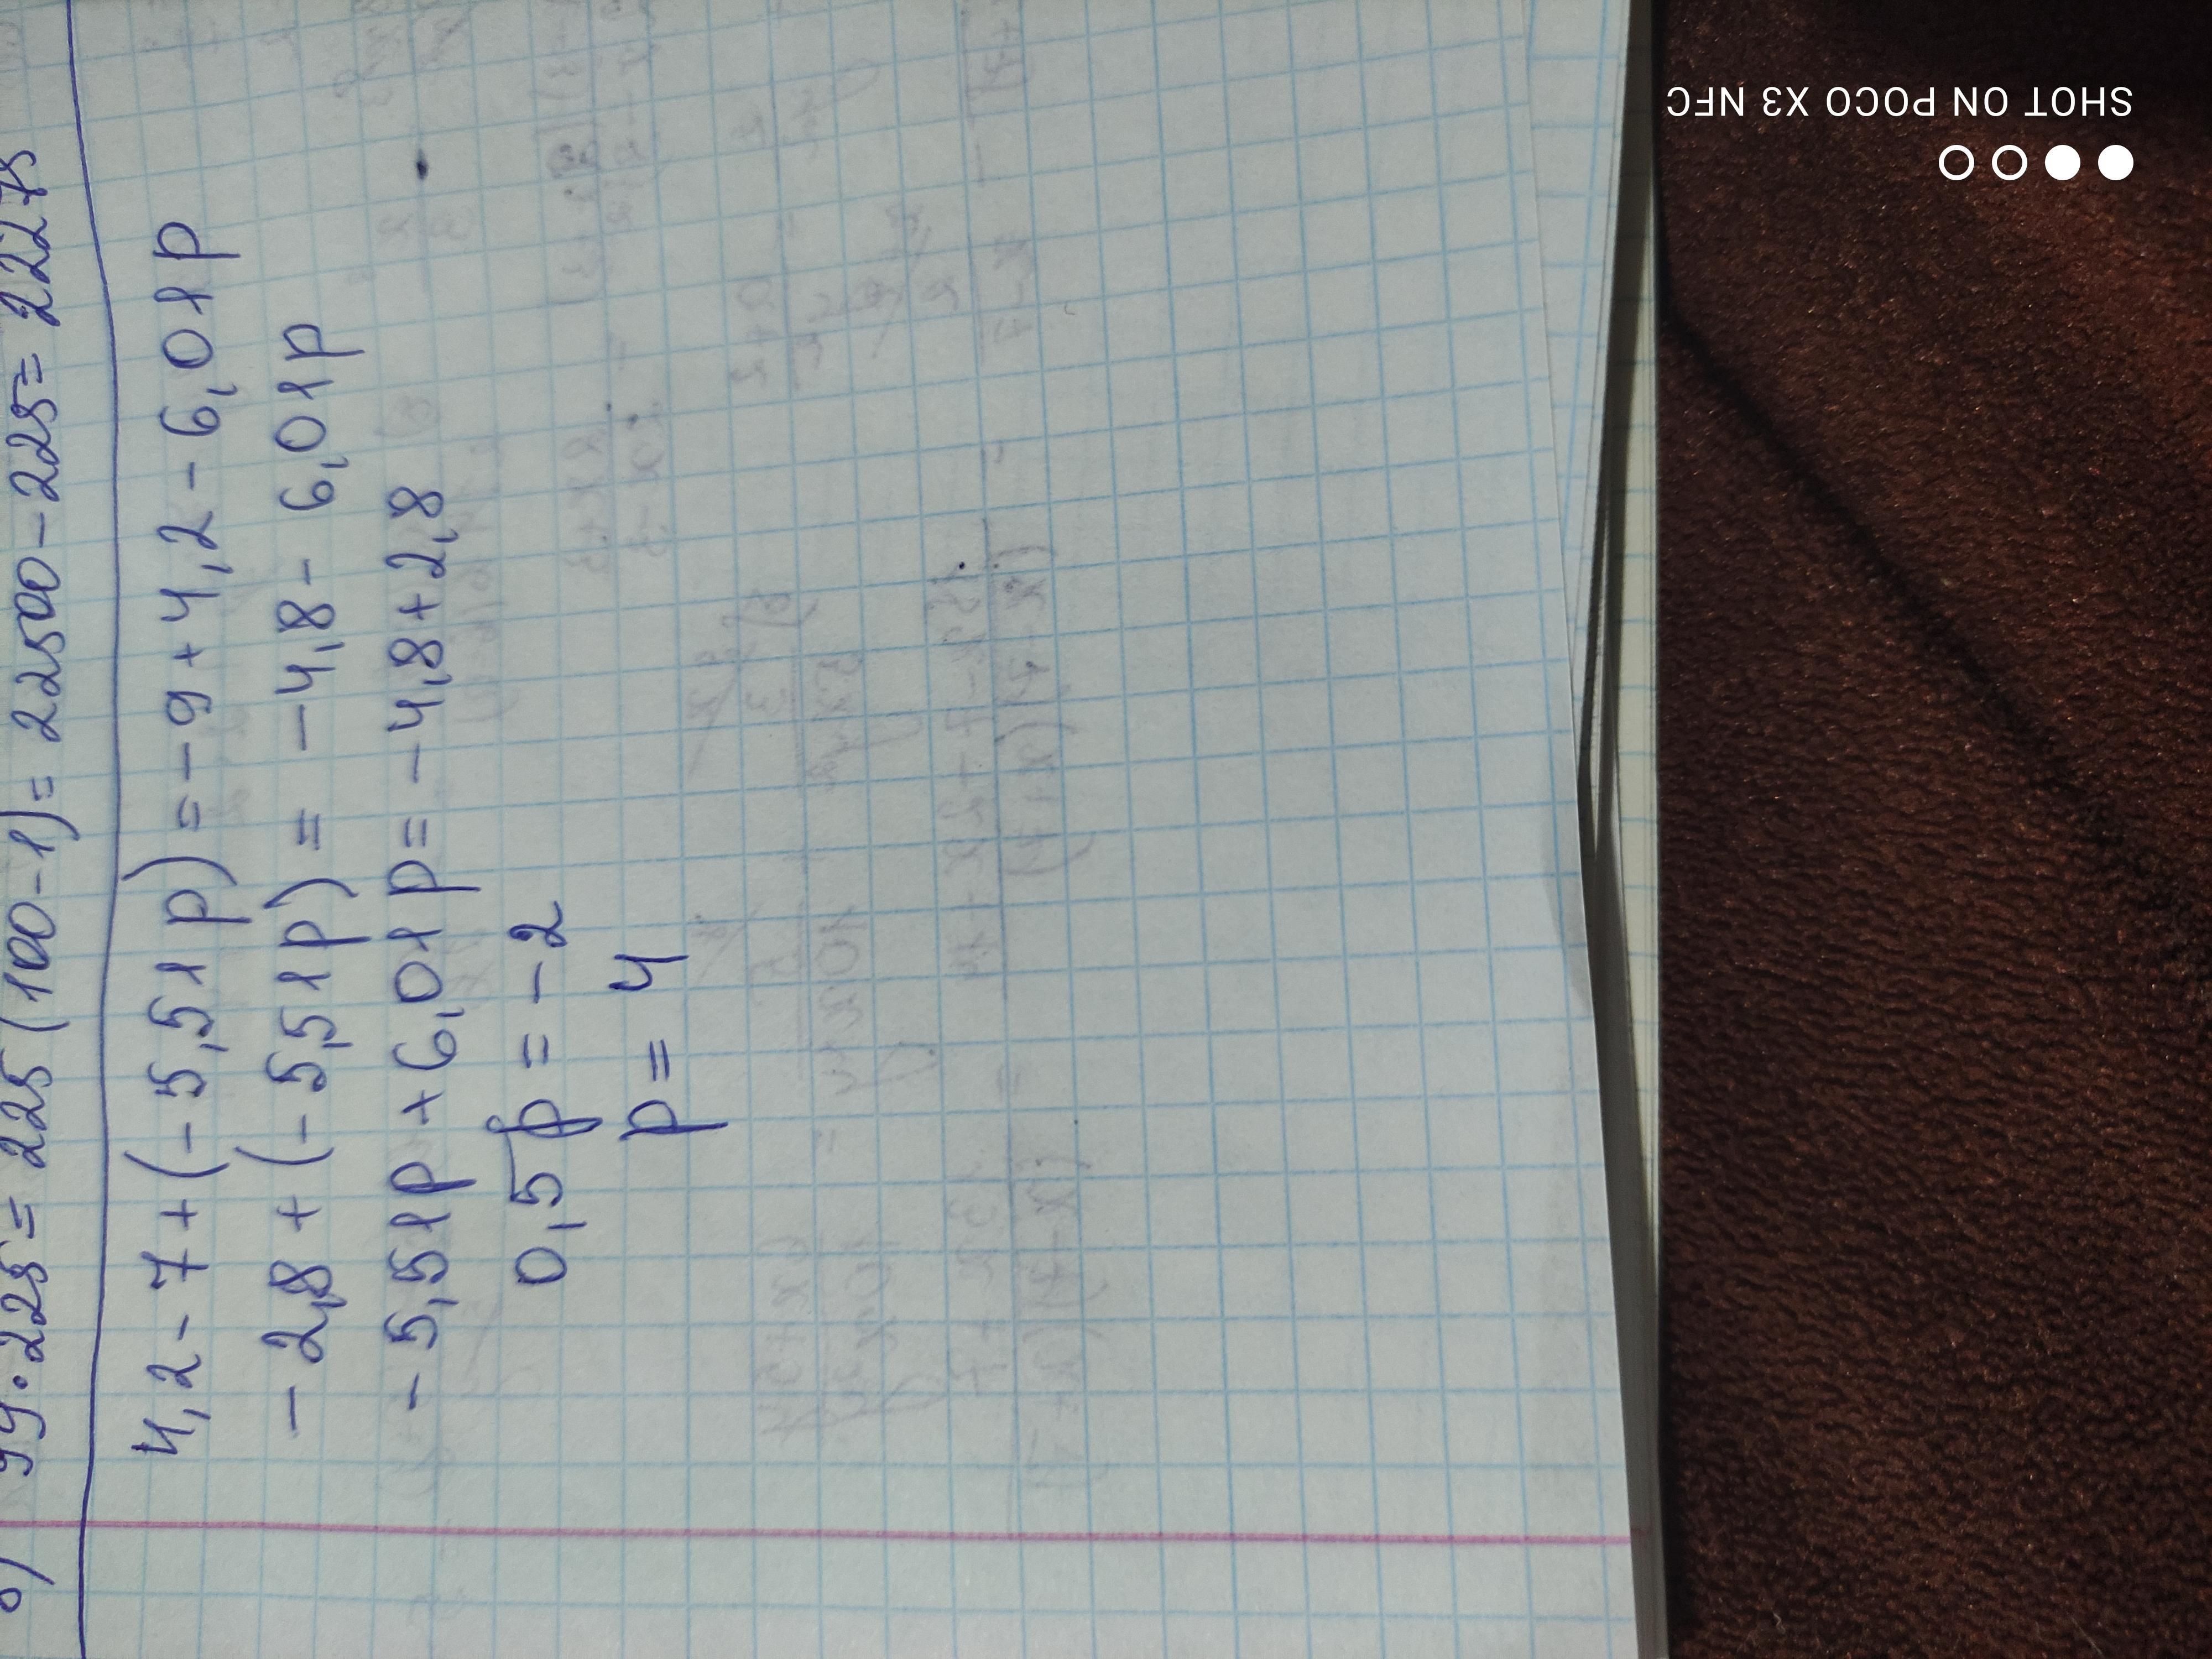 99·225= 225(100-1)= 22500-225= 22275
4,2-7+(-5,51p)=-9+4,2-6,01p
-2,8+(-5,51p)= -4,8-6,01p
-5,51p+6,01p=-4,8+2,8
0,5p=-2
p=4
SHOT ON POCO X3 NFC